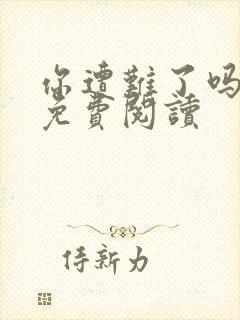 你遭難了吗
免費閱讀
侍新力